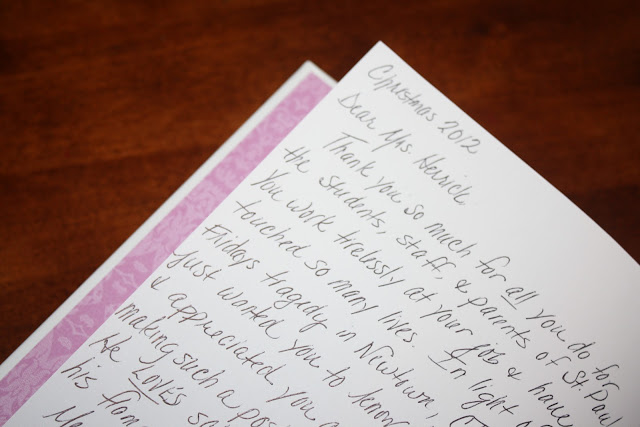 Christmas 2012
Dear Mrs Herrick
Thank you so much for all you do for
the students, staff, & parents of St. Paul
You work tirelessly at your job & have
touched so many lives. In light
Fridays tragedy in Newtown,
just wanted you to know
& appreciated you
making such a pos
He LOVES so
his from